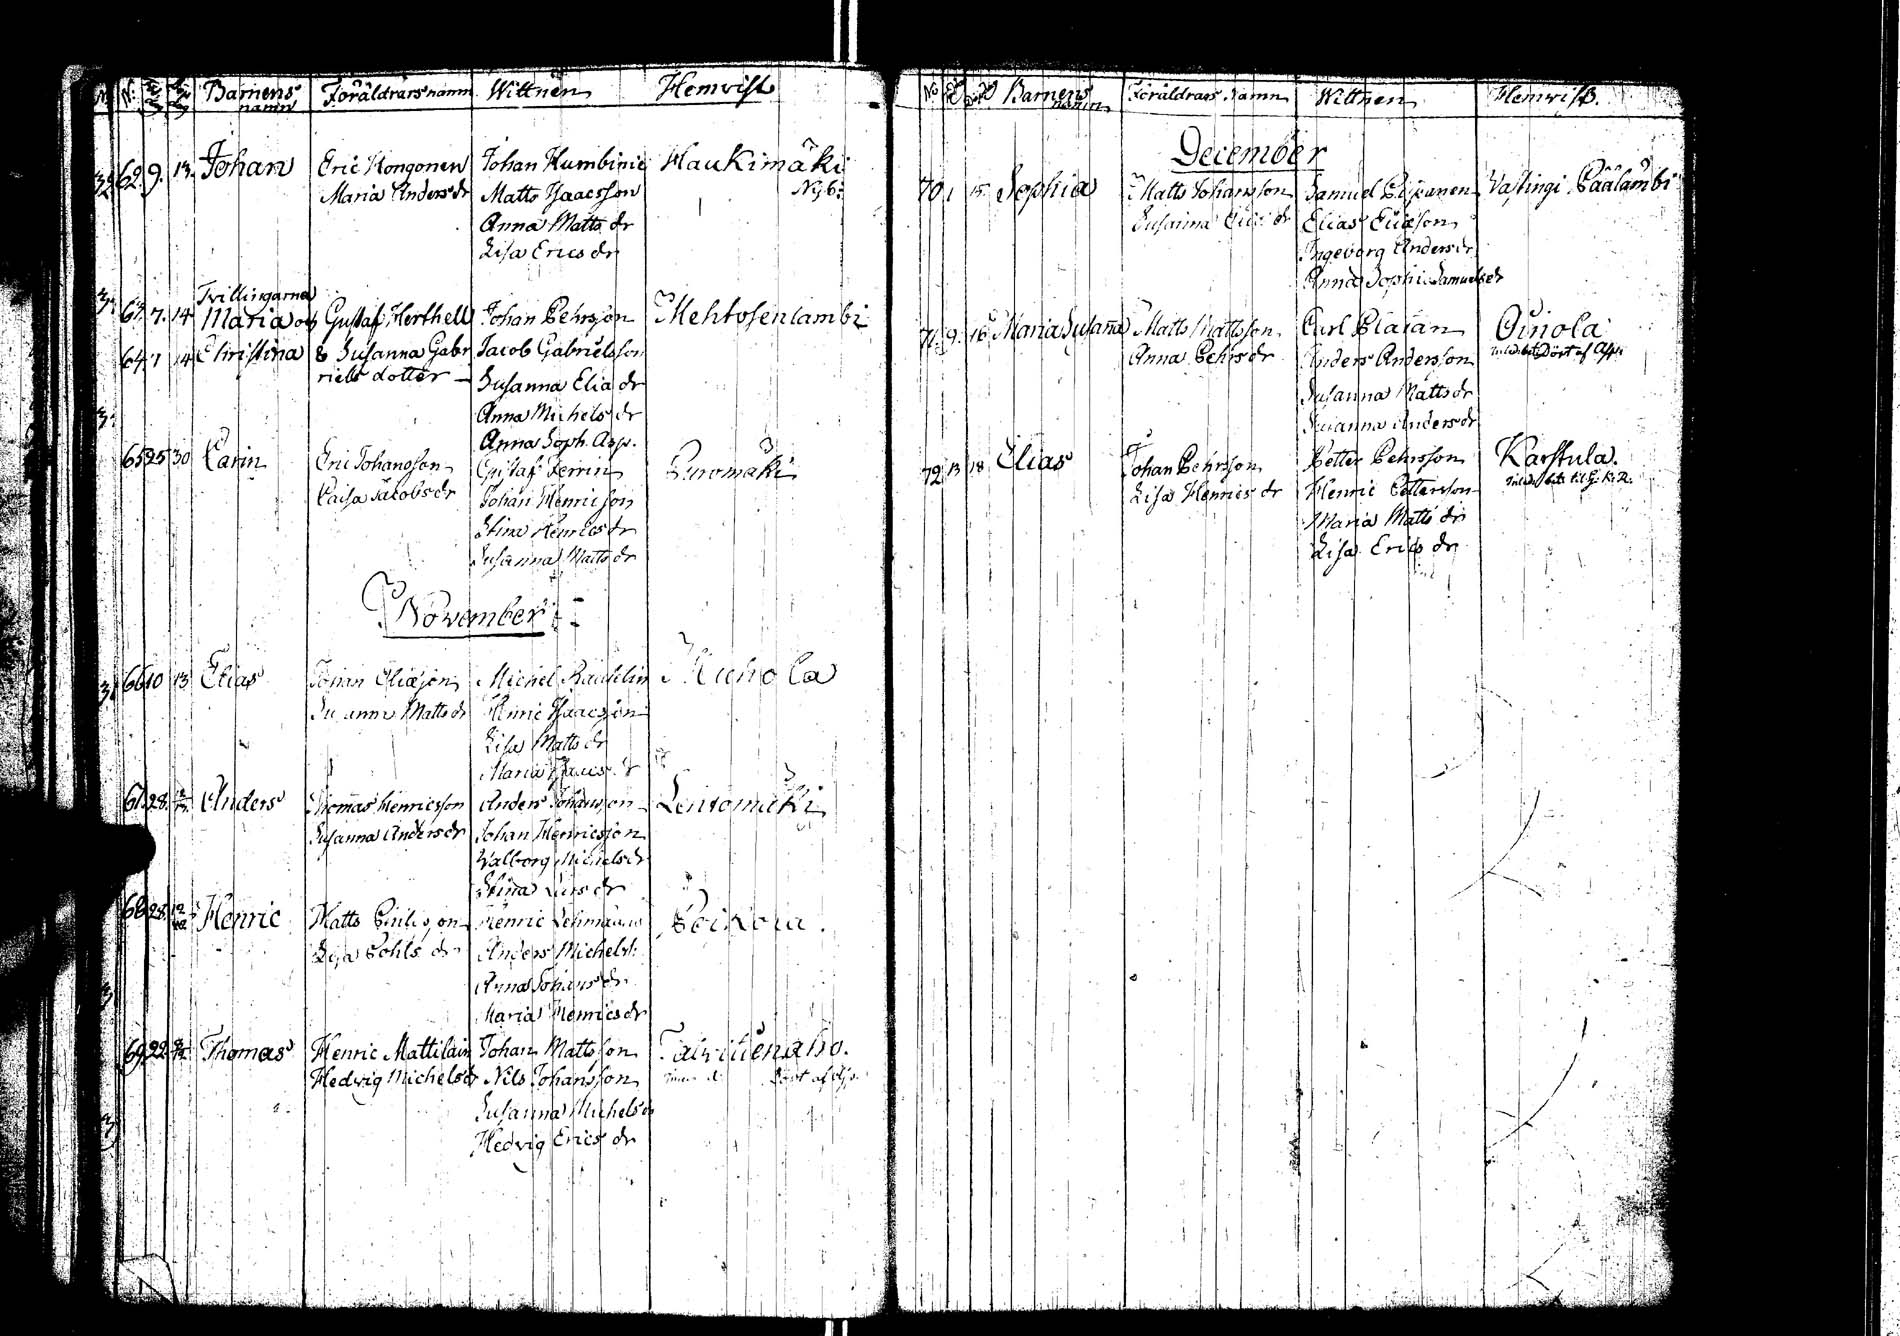 N: Barnens namn Föräldrars namn Wittnen Hemvist
62. 9. 13. Johan Eric Hongonen Johan Kumbinie Haukimäki
Maria Anders dr Matts Isaacsson N: 6:
Anna Matts dr
Lisa Erics dr
Tvillingarna
63. 7. 14 Maria och Gustaf Herthell Johan Pehrsson Mehtosenlambi
64. 7 14 Christina & Susanna Gabr Jacob Gabrielsson
riels dotter Susanna Elia dr
Anna Michels dr
Anna Soph. Asp.
65 25 30 Carin Eric Johansson Gustaf Ferrin Puromäki
Caisa Jacobs dr Johan Henricsson
Stina Henrics dr
Susanna Matts dr
November
66 10 13 Elias Johan Eliæson Michel Rautelin
Susanna Matts dr Henric Isaacsson
Lisa Matts dr
Maria Isaacs dr
67. 28. Anders Thomas Henricsson Anders Johansson Lentomäki
Susanna Anders dr Johan Henricsson
Walborg Michels dr
Stina Lars dr
68 28. Henric Matts Henric
Lisa Pohls dr Anders Michels:
Anna Johans dr
Maria Henrics dr
69. 22. Thomas Henric Mattilain Johan Mattsson Talvitienaho.
Hedvig Michels dr Nils Johansson Döpt af
Susanna Michels dr
Hedvig Erics dr
No Barnens namn Föräldrars Namn Wittnen Hemvist.
December
70 1 15 Sophia Matts Johansson Samuel Pispanen Vastingi. Päälambi
Susanna Eric dr Elias Eliæson
Ingeborg Anders dr
Anna Sophi Samuels dr
71. 9. 16 Maria Susanna Matts Mattsson Carl Platan Oinola
Anna Pehrs dr Anders Andersson Döpt af Asp:
Susanna Matts dr
Susanna Anders dr
72 13 18 Elias Johan Pehrsson Petter Pehrsson Karstula.
Lisa Henrics dr Henric Pettersson
Maria Matts dr
Lisa Erics dr